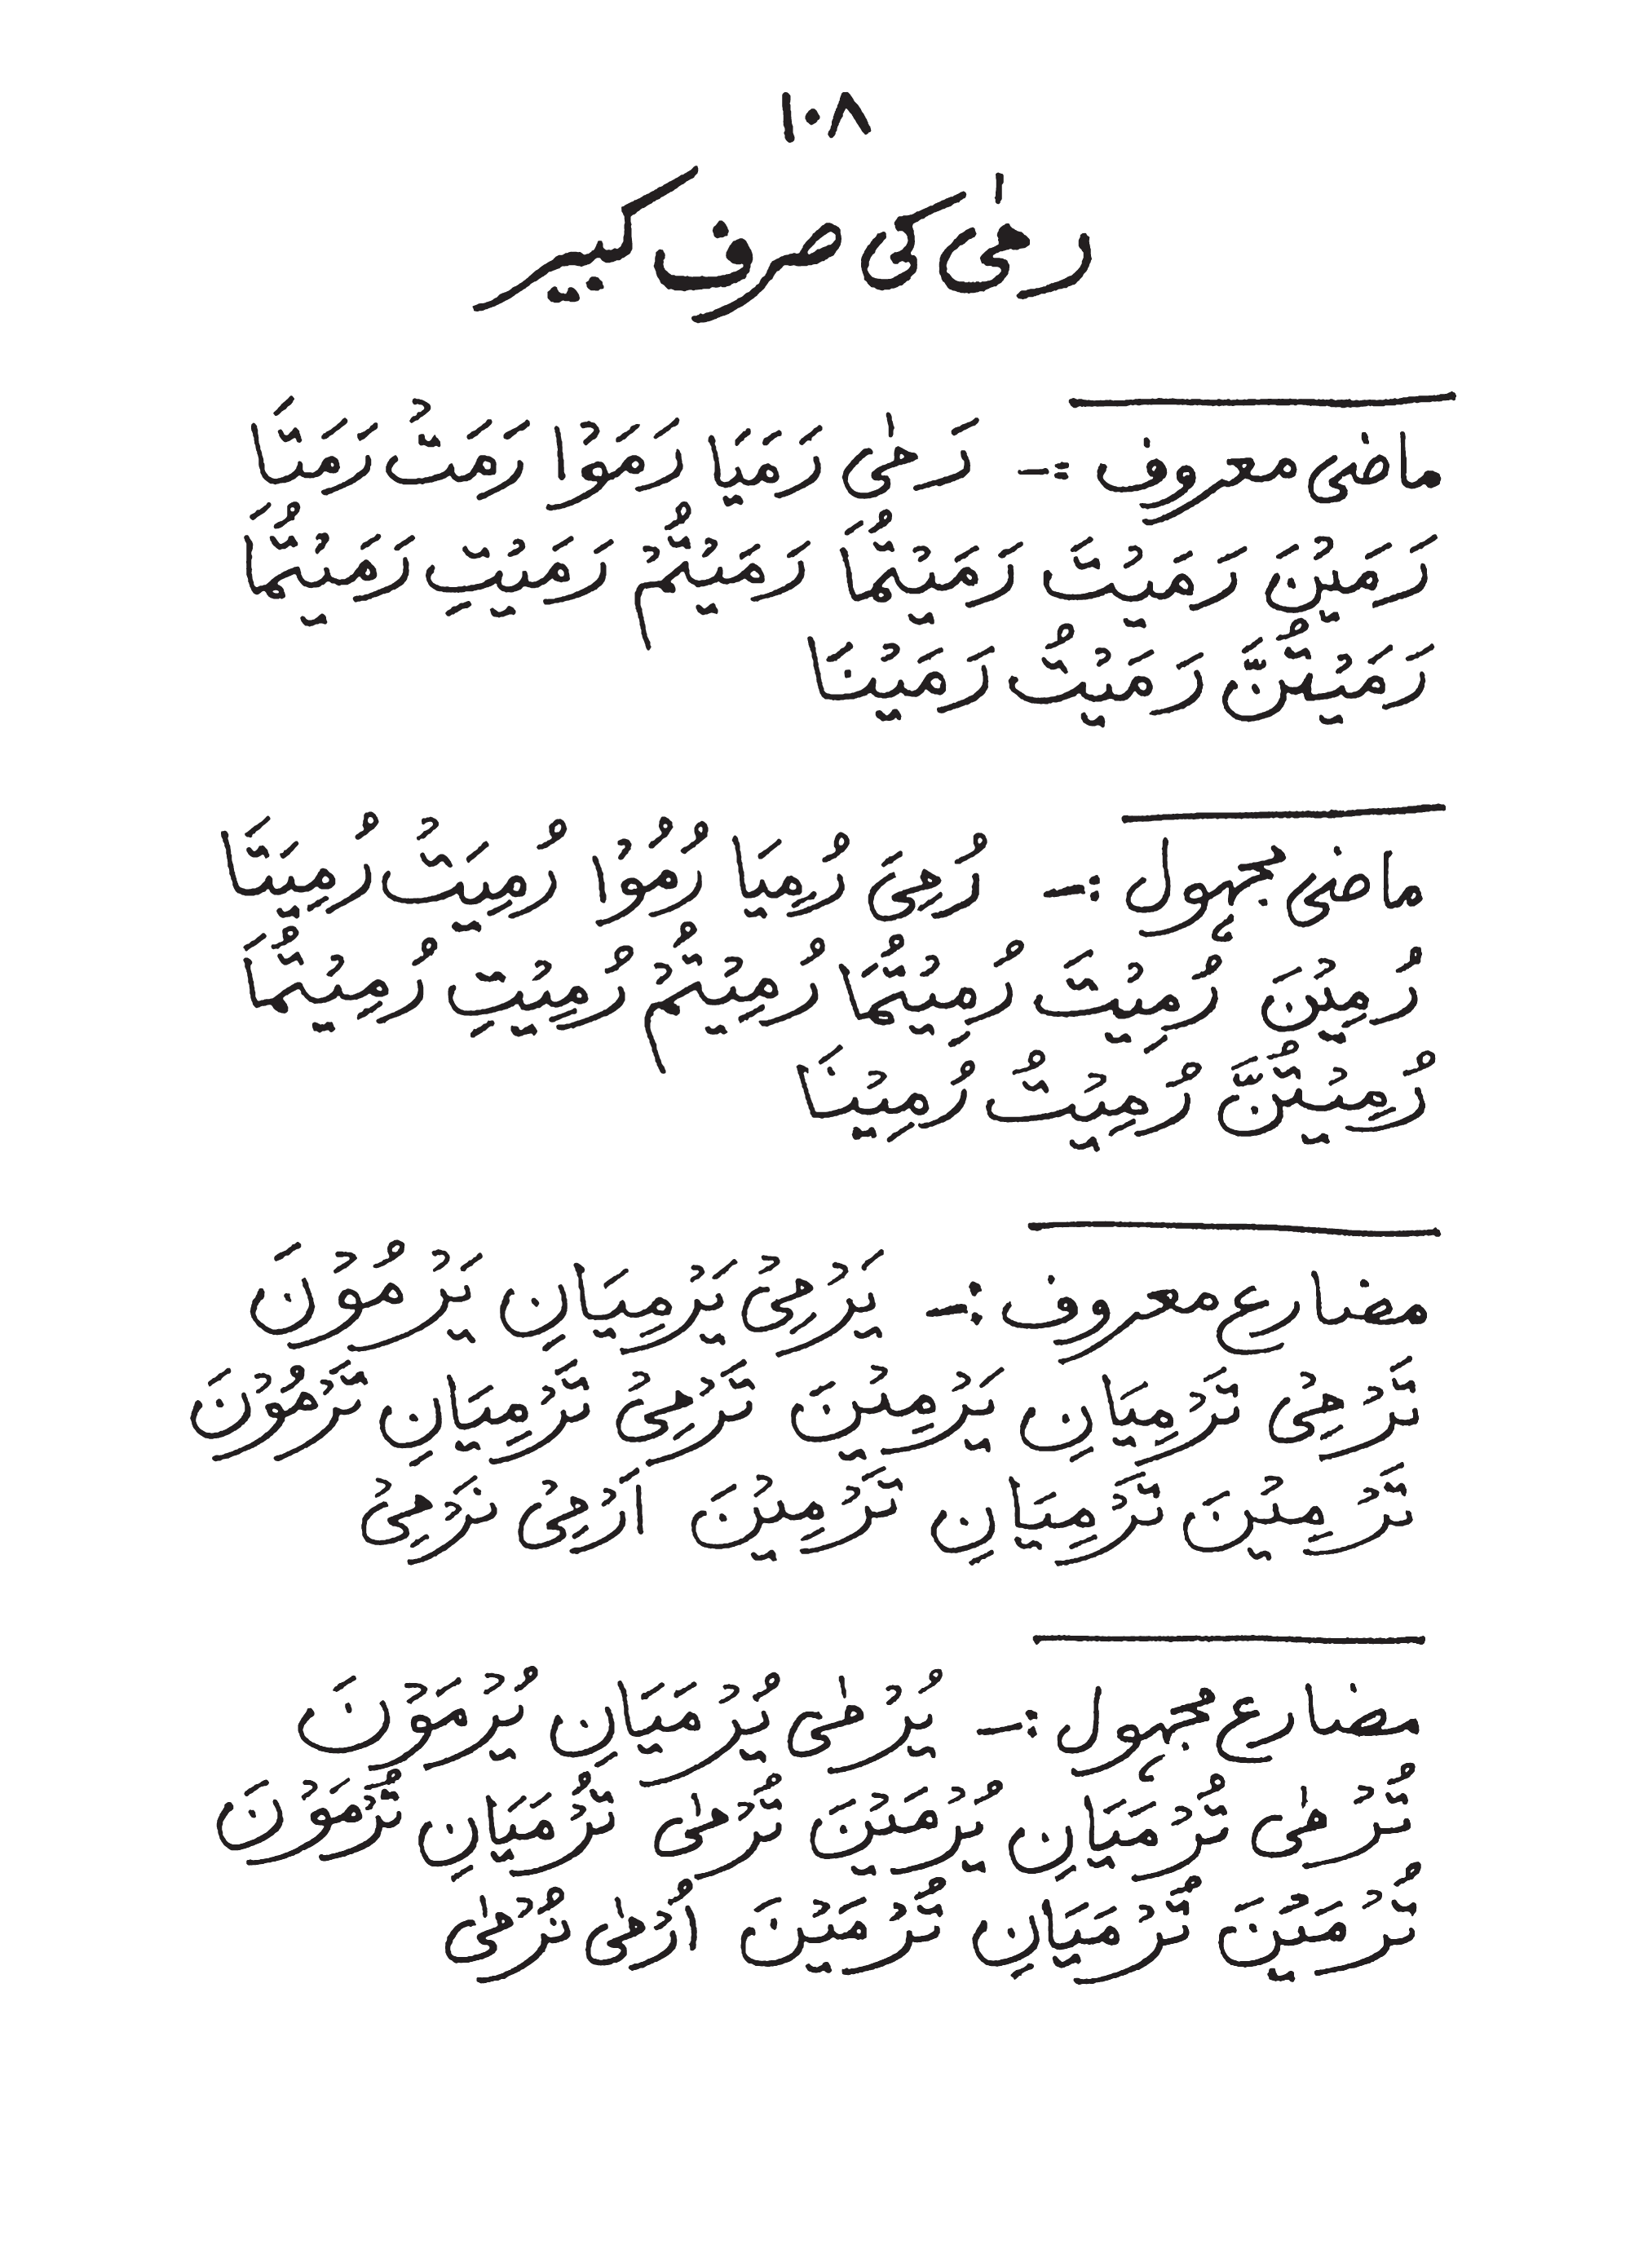 ١٠٨
رمٰی کی صرف کبیر
ماضی معروف :- رَمٰی رَمَیَا رَمَوْا رَمَتْ رَمَتَا
رَمَیْنَ رَمَیْتَ رَمَیْتُمَا رَمَیْتُمْ رَمَیْتِ رَمَیْتُمَا
رَمَیْتُنَّ رَمَیْتُ رَمَیْنَا
ماضی مجہول :- رُمِیَ رُمِیَا رُمُوْا رُمِیَتْ رُمِیَتَا
رُمِیْنَ رُمِیْتَ رُمِیْتُمَا رُمِیْتُمْ رُمِیْتِ رُمِیْتُمَا
رُمِیْتُنَّ رُمِیْتُ رُمِیْنَا
مضارع معروف :- یَرْمِیْ یَرْمِیَانِ یَرْمُوْنَ
تَرْمِیْ تَرْمِیَانِ یَرْمِیْنَ تَرْمِیْ تَرْمِیَانِ تَرْمُوْنَ
تَرْمِیْنَ تَرْمِیَانِ تَرْمِیْنَ اَرْمِیْ نَرْمِیْ
مضارع مجہول :- یُرْمٰی یُرْمَیَانِ یُرْمَوْنَ
تُرْمٰی تُرْمَیَانِ یُرْمَیْنَ تُرْمٰی تُرْمَیَانِ تُرْمَوْنَ
تُرْمَیْنَ تُرْمَیَانِ تُرْمَیْنَ اُرْمٰی نُرْمٰی